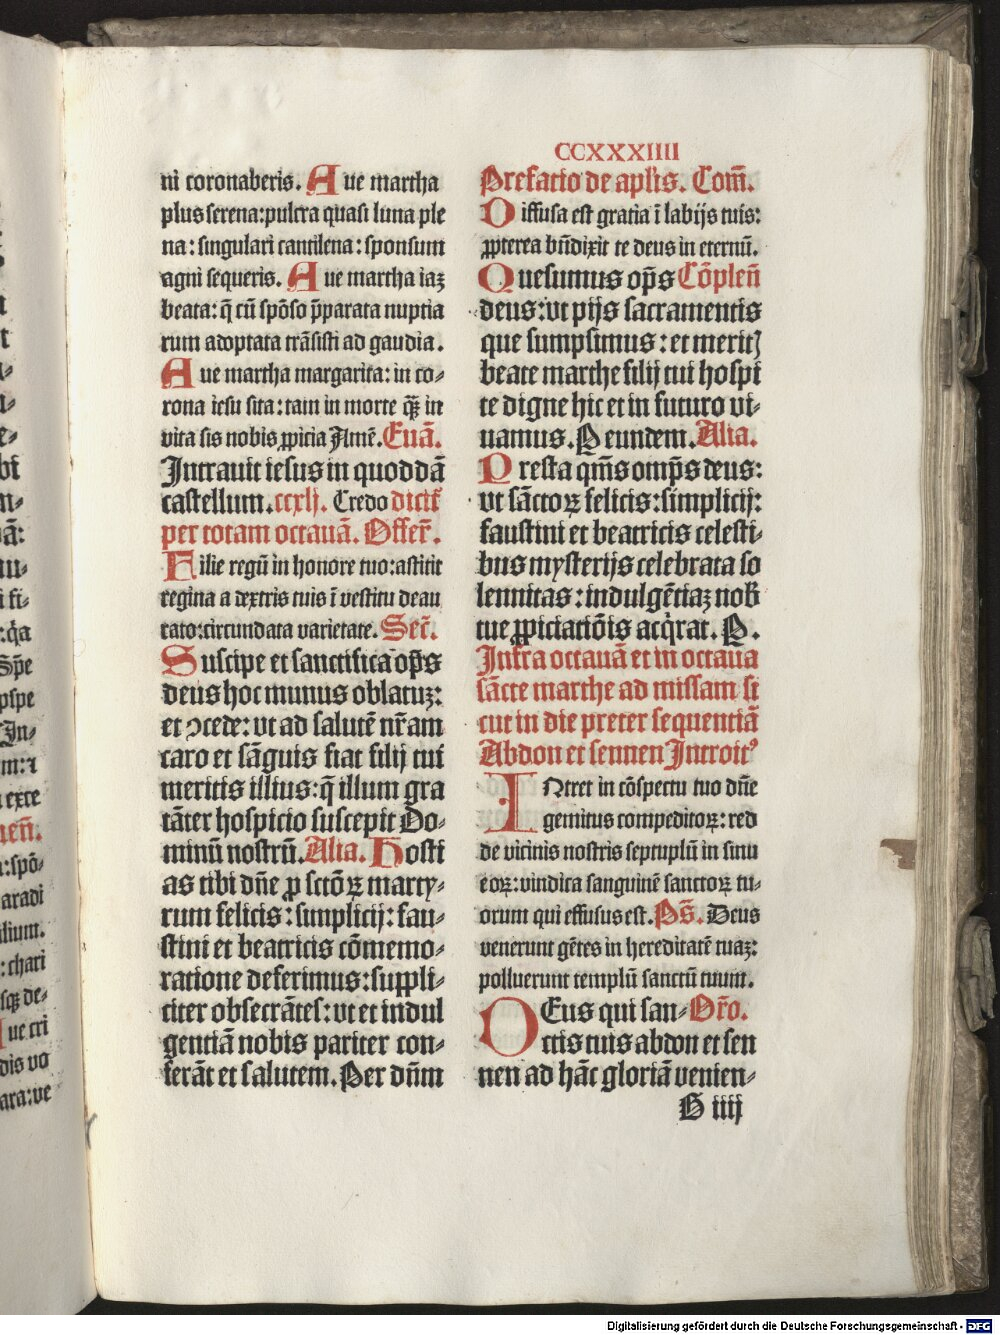 CCXXXIIII
ni coronaberis. Aue martha
plus serena: pulcra quasi luna ple
na: singulari cantilena: sponsum
agni sequeris. Aue martha iaꝫ
beata: q̄ cū spōso p̄parata nuptia
rum adoptata trāsisti ad gaudia.
Aue martha margarita: in co⸗
rona iesu sita: tam in morte q̄ꝫ in
vita sis nobis ꝓpicia Amē. Euā.
Intrauit iesus in quoddā
castellum. ccxlj. Credo dicit᷑
per totam octauā. Offer̄.
Filie regū in honore tuo: astitit
regina a dextris tuis ī vestitu deau
rato: circundata varietate. Secr̄.
Suscipe et sanctifica op̄s
deus hoc munus oblatuꝫ:
et ꝯcede: vt ad salutē nr̄am
caro et sāguis fiat filij tui
meritis illius: q̄ illum gra
tāter hospicio suscepit Do⸗
minū nostrū. Alia. Hosti
as tibi dn̄e ꝓ sctōꝝ marty⸗
rum felicis: simplicij: fau⸗
stini et beatricis cōmemo⸗
ratione deferimus: suppli⸗
citer obsecrātes: vt et indul
gentiā nobis pariter con⸗
ferāt et salutem. Per dn̄m
Prefatio de apl̄is. Com̄.
Diffusa est gratia ī labijs tuis:
ꝓpterea bn̄dixit te deus in eternū.
Quesumus op̄s Cōplen̄
deus: vt pijs sacramentis
que sumpsimus: et meritꝭ
beate marthe filij tui hospi
te digne hic et in futuro vi⸗
uamus. P eundem. Alia.
Presta qm̄s omp̄s deus:
vt sāctoꝝ felicis: simplicij:
faustini et beatricis celesti⸗
bus mysterijs celebrata so
lennitas: indulgētiaꝫ nob̄
tue ꝓpiciatiōis acq̄rat. P.
Infra octauā et in octaua
sācte marthe ad missam si
cut in die preter sequentiā
Abdon et sennen Introitꝰ
INtret in cōspectu tuo dn̄e
gemitus compeditoꝝ: red
de vicinis nostris septuplū in sinu
eoꝝ: vindica sanguinē sanctoꝝ tu⸗
orum qui effusus est. Ps̄. Deus
venerunt gētes in hereditatē tuaꝫ:
polluerunt templū sanctū tuum.
DEus qui san⸗ Or̄o.
ctis tuis abdon et sen
nen ad hāc gloriā venien⸗
G iiij
Digitalisierung gefördert durch die Deutsche Forschungsgemeinschaft - DFG